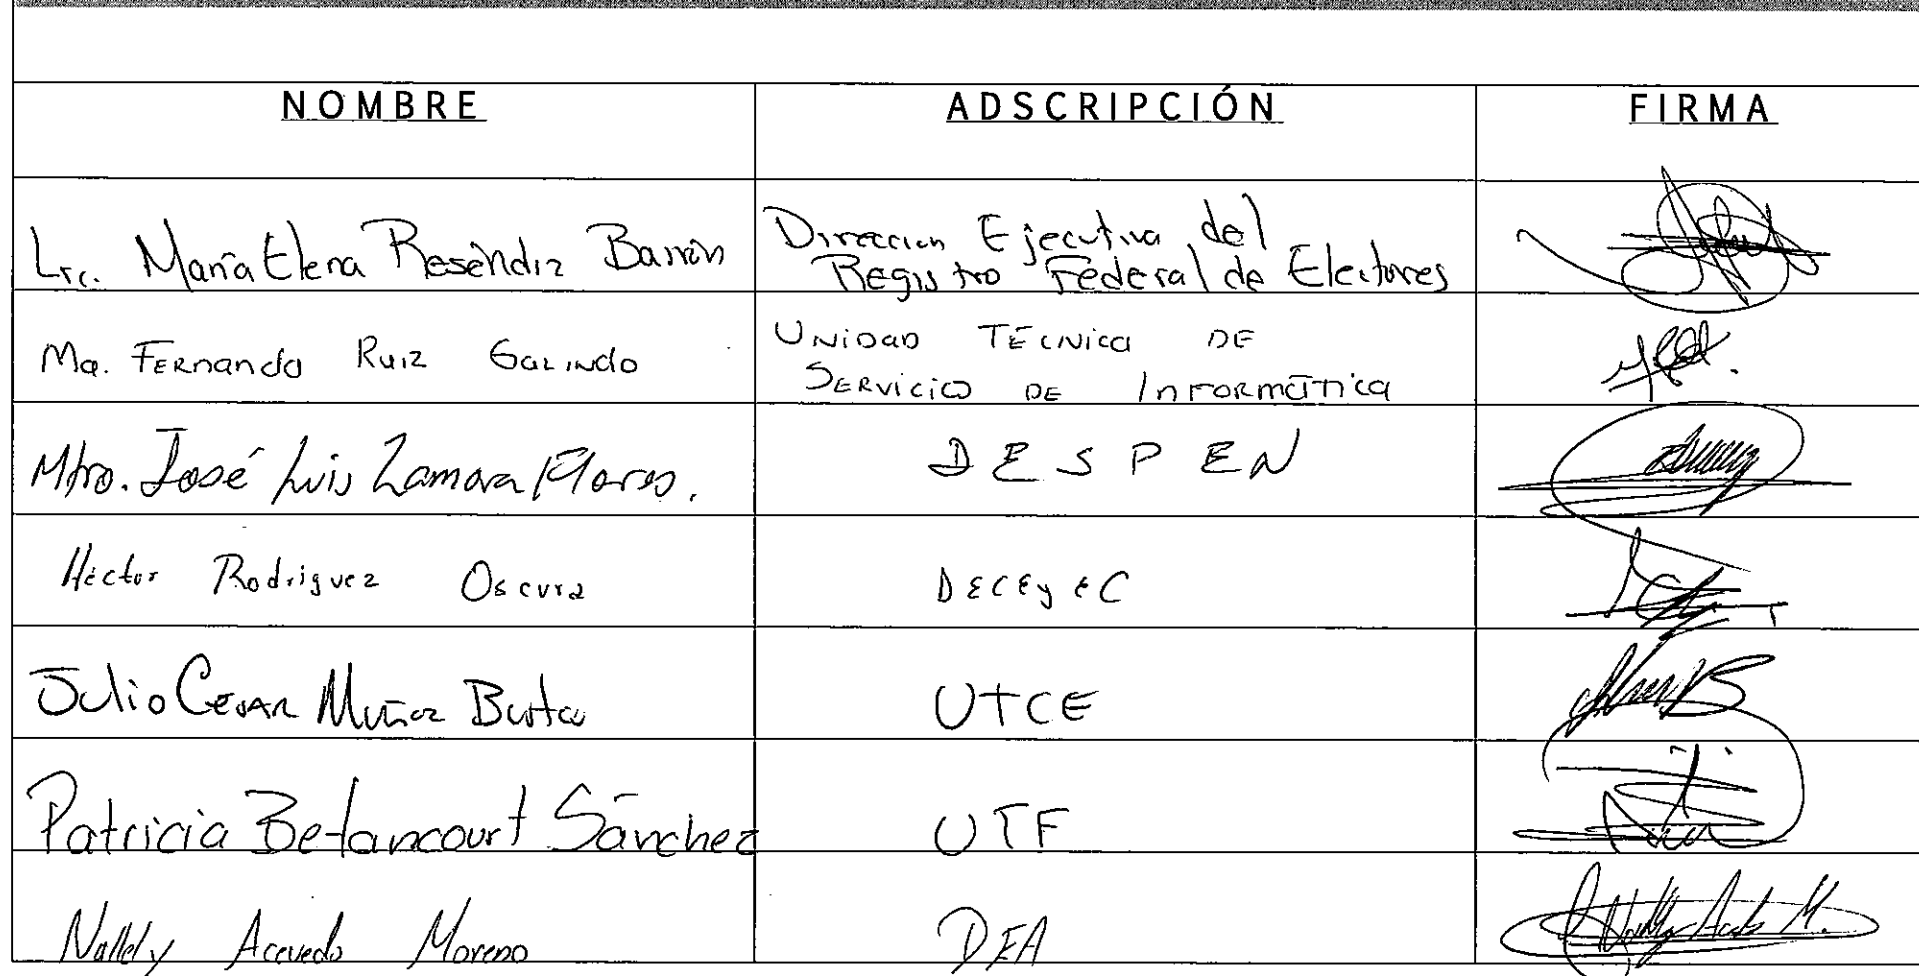 NOMBRE ADSCRIPCIÓN FIRMA
Lic. María Elena Reséndiz Barrón Dirección Ejecutiva del
Registro Federal de Electores
Ma. Fernanda Ruiz Galindo UNIDAD TÉCNICA DE
SERVICIO DE INFORMÁTICA
Mtro. José Luis Zamora Flores. DESPEN
Héctor Rodriguez Oscura DECEyEC
Julio CESAR Muñoz UTCE
Patricia Betancourt Sánchez UTF
Nallely Acevedo Moreno DEA